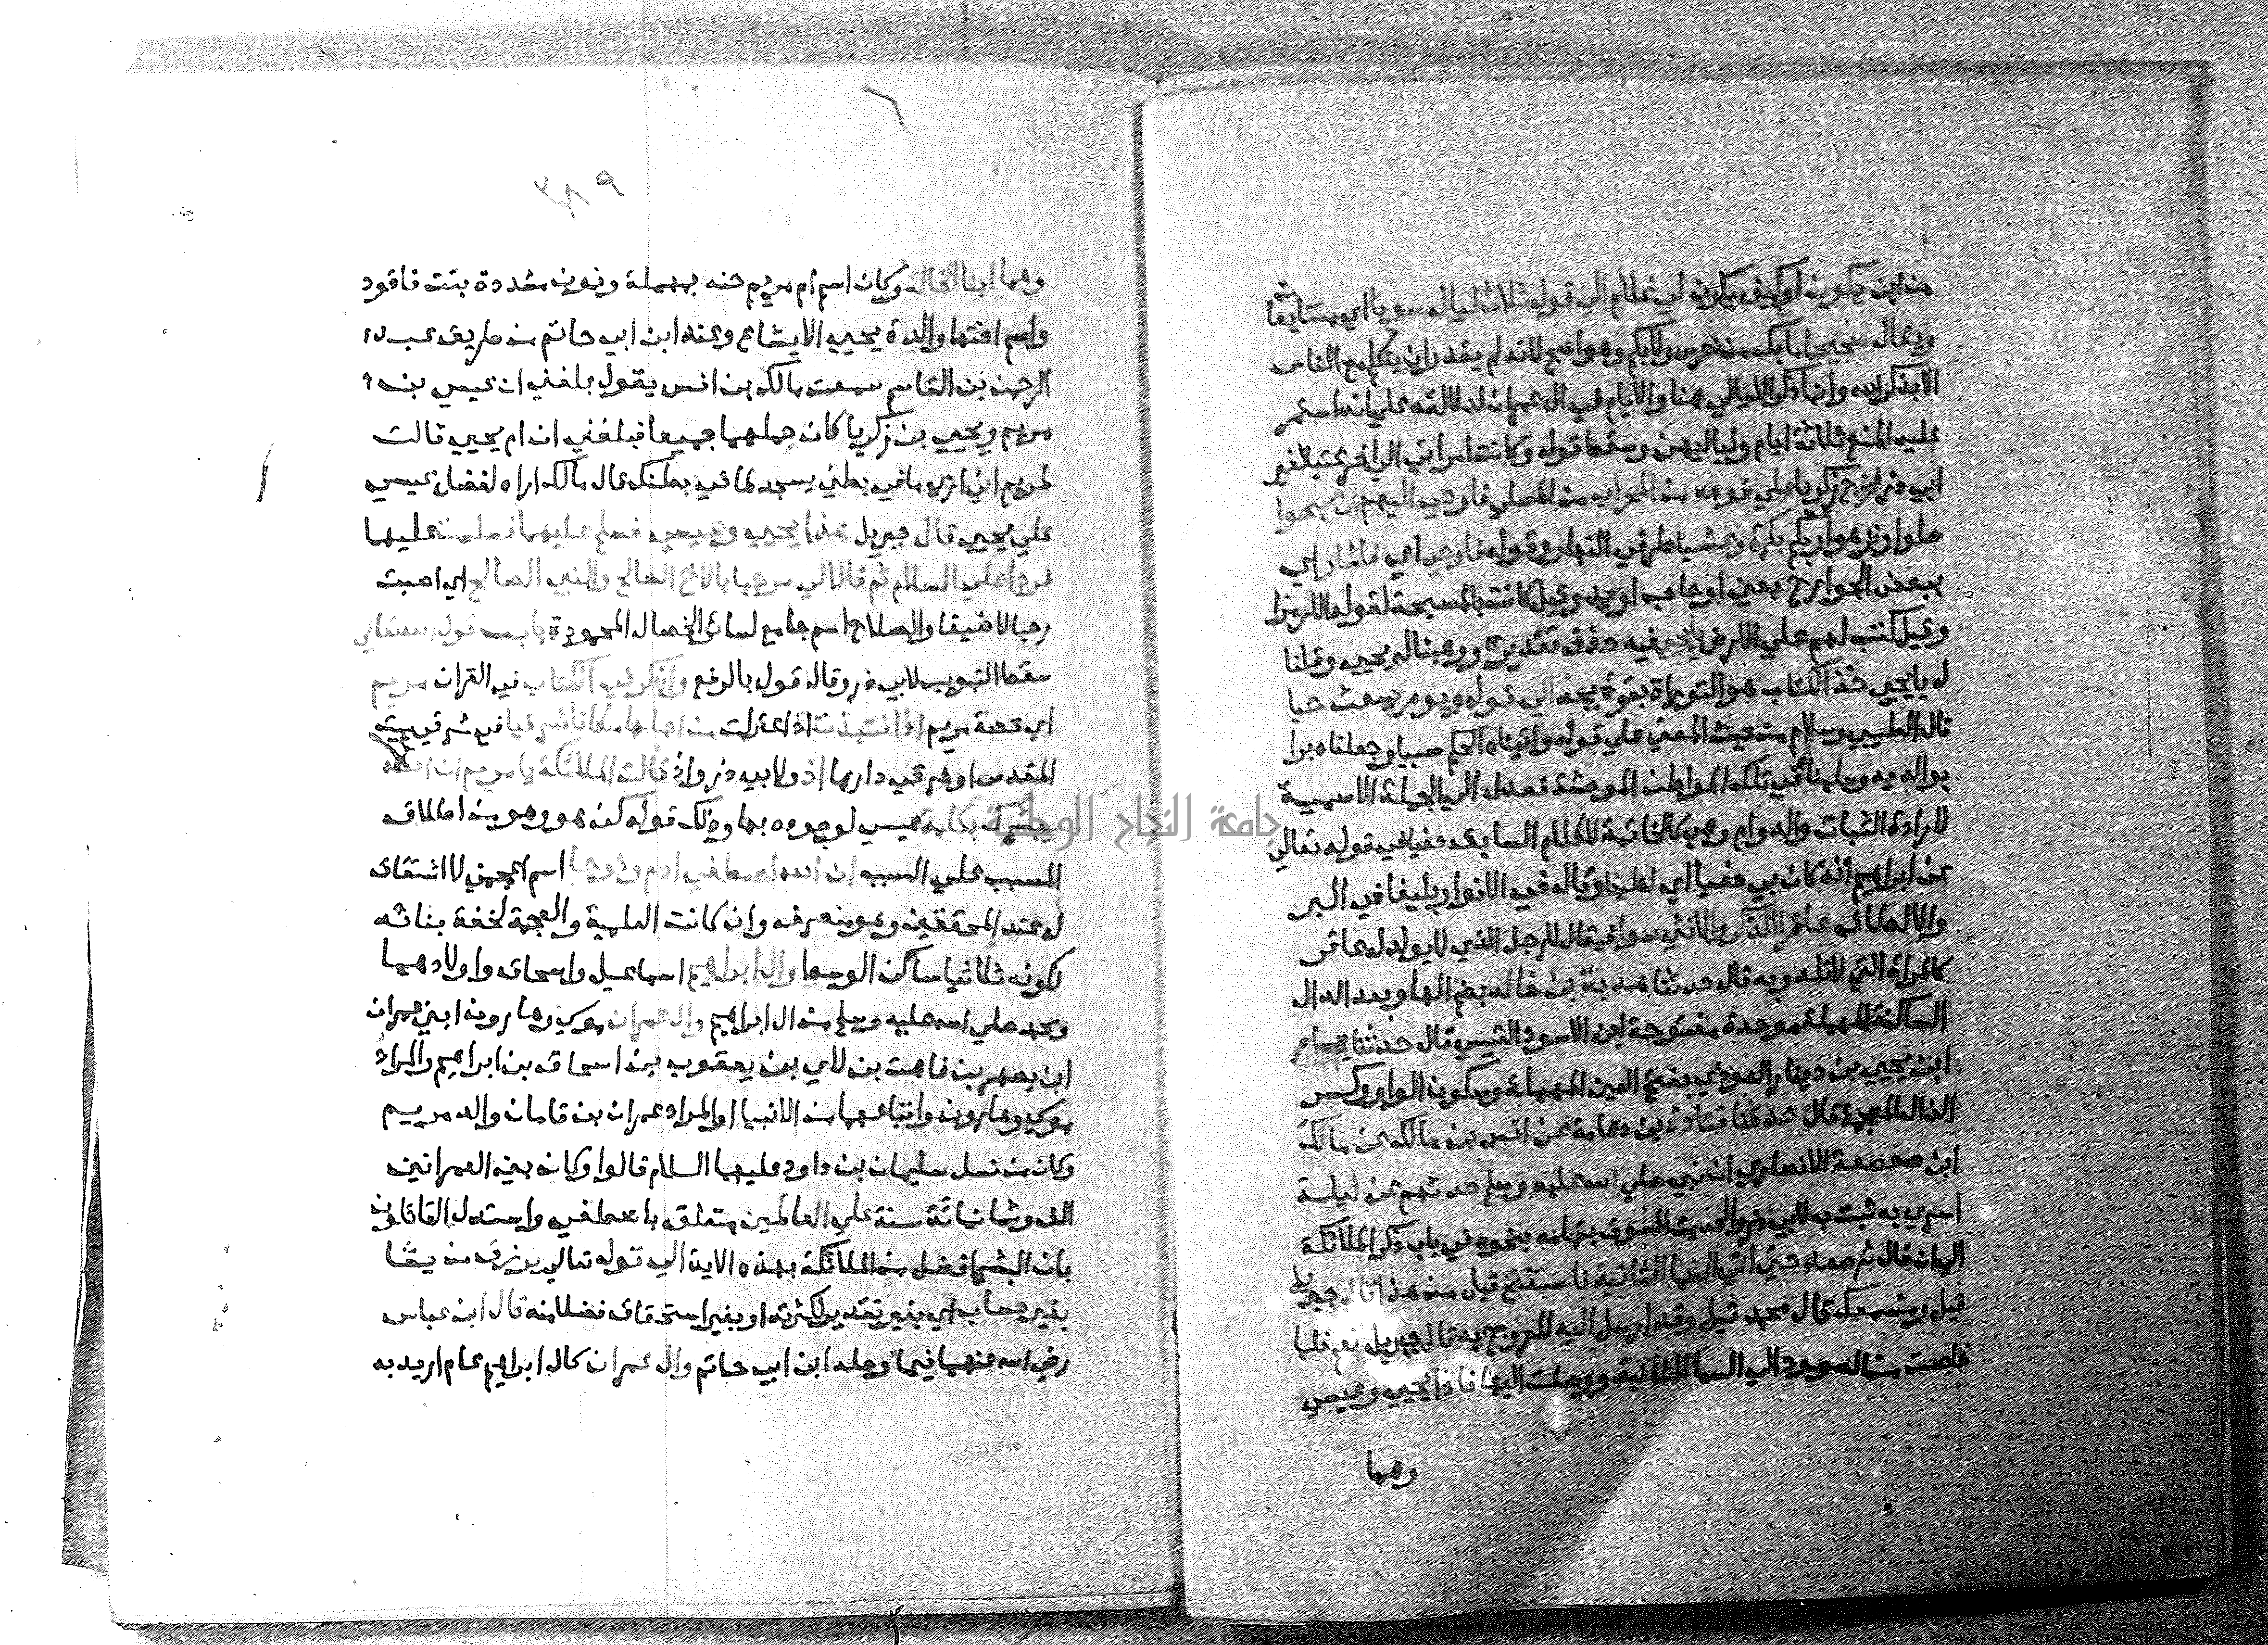 من اين يكون او كيف يكون لي غلام الي قوله ثلاث ليال سويا اي متتابعات
ويقال صحيحا ما بك من خرس ولا بكم وهو اصح لانه لم يقدر ان يتكلم مع الناس
الا بذكر الله وانما ذكر الليالي هنا والايام في ال عمران لدلالته علي انه استمر
عليه المنع ثلاثة ايام ولياليهن وسقط قوله وكانت امراتي الي اخر عتيا لغير
ابي ذر فخرج زكريا علي قومه من المحراب من المصلي فاوحي اليهم ان سبحوا
صلوا او نزهوا ربكم بكرة وعشيا طرفي النهار وقوله فاوحي اي فاشار اي
ببعض الجوارح بعين او حاجب او يد وقيل كانت بالمسبحة لقوله الا رمزا
وقيل كتب لهم علي الارض يا يحيي فيه حذف تقديره ووهبنا له يحيي وقلنا
له يا يحيي خذ الكتاب هو التوراة بقوة بجد الي قوله ويوم يبعث حيا
قال الطيبي وسلام من حيث المعني علي قوله واتيناه الحكم صبيا وجعلناه برا
بوالديه وسلمناه في تلك المواطن الموحشة فعدل الي الجملة الاسمية
لارادة الثبات والدوام وهي كالخاتمة للكلام السابق حفيا في قوله تعالي
عن ابراهيم انه كان بي حفيا اي لطيفا وقال في الانوار بليغا في البر
والالطاف عاقرا الذكر والانثي سوا فيقال للرجل الذي لا يولد له عاقر
كالمراة التي لا تلد وبه قال حدثنا هدبة بن خالد بضم الها وبعد الدال
الساكنة المهملة موحدة مفتوحة ابن الاسود القيسي قال حدثنا همام
ابن يحيي بن دينار العوذي بفتح العين المهملة وسكون الواو وكسر
الذال المعجمة قال حدثنا قتادة بن دعامة عن انس بن مالك عن مالك
ابن صعصعة الانصاري ان نبي صلي الله عليه وسلم حدثهم عن ليلة
اسري به ثبت به لابي ذر والحديث المسوق بتمامه بنحوه في باب ذكر الملائكة
الي ان قال ثم صعد حتي اتي السما الثانية فاستفتح قيل من هذا قال جبريل
قيل ومن معك قال محمد قيل وقد ارسل اليه للعروج به قال جبريل نعم فلما
خلصت من الصعود الي السما الثانية ووصلت اليها فاذا يحيي وعيسي
وهما
٣٨٩
وهما ابنا الخالة وكان اسم ام مريم حنه بمهملة ونون مشددة بنت فاقود
واسم اختها والدة يحيي الايشاع وعند ابن ابي حاتم من طريق عبد
الرحمن بن القاسم سمعت مالك بن انس يقول بلغني ان عيسي بن
مريم ويحيي بن زكريا كان حملهما جميعا فبلغني ان ام يحيي قالت
لمريم اني اري ما في بطني يسجد لما في بطنك قال مالك اراه لفضل عيسي
علي يحيي قال جبريل هذا يحيي وعيسي فسلم عليهما فسلمت عليهما
فردا علي السلام ثم قالا لي مرحبا بالاخ الصالح والنبي الصالح اي اصبت
رحبا لا ضيقا والصلاح اسم جامع لسائر الخصال المحمودة باب قول الله تعالي
سقط التبويب لابي ذر وقال قول بالرفع واذكر في الكتاب في القران مريم
اي قصة مريم اذ انتبذت اذ اعتزلت من اهلها مكانا شرقيا في شرقي بيت
المقدس او شرقي دارها اذ ولابي ذر واذ قالت الملائكة يا مريم ان الله
يبشرك بكلمة عيسي لوجوده بها وذلك قوله كن هو وهو من اطلاق
المسبب علي السبب ان الله اصطفي ادم ونوحا اسم اعجمي لا اشتقاق
له عند المحققين وهو منصرف وان كانت العلمية والعجمة لخفة بنائه
لكونه ثلاثيا ساكن الوسط وال ابراهيم اسماعيل واسحاق واولادهما
ومحمد صلي الله عليه وسلم من ال ابراهيم وال عمران موسي وهارون ابني عمران
ابن يصهر بن فاهت بن لاي بن يعقوب بن اسحاق بن ابراهيم والمراد
موسي وهارون واتباعهما من الانبيا او المراد عمران بن ماتان والد مريم
وكان من نسل سليمان بن داود عليهما السلام قالوا وكان بين العمرانين
الف وثمانمائة سنة علي العالمين متعلق باصطفي واستدل القائلون
بان البشر افضل من الملائكة بهذه الاية الي قوله تعالي يرزق من يشا
بغير حساب اي بغير تقدير لكثرته او بغير استحقاق فضلا منه قال ابن عباس
رضي الله عنهما فيما وصله ابن ابي حاتم وال عمران كال ابراهيم عام اريد به
جامعة النجاح الوطنية